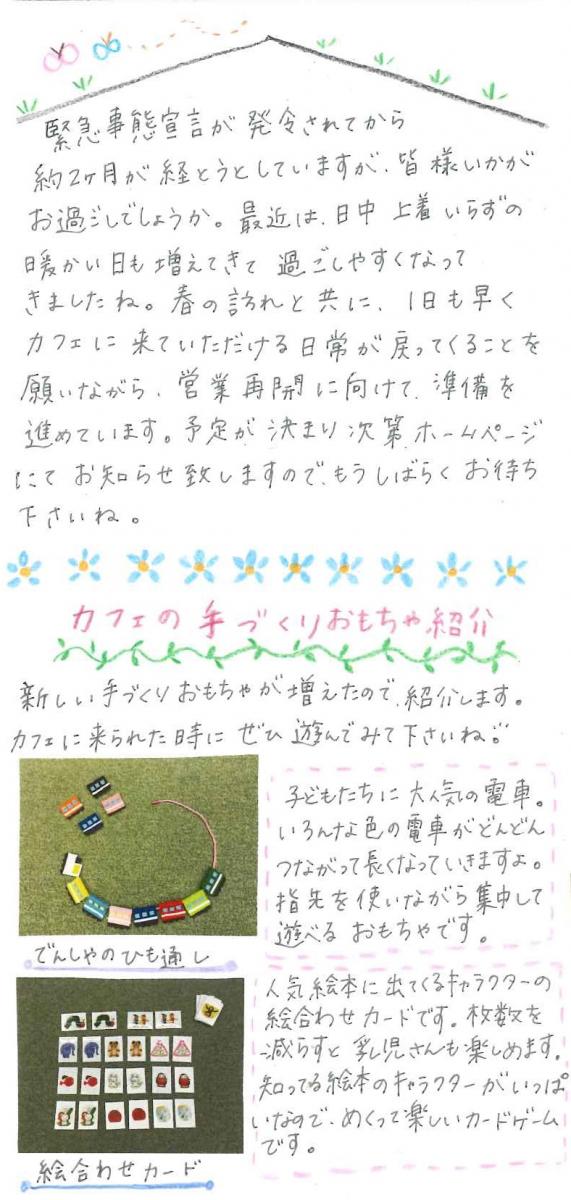 緊急事態宣言が発令されてから
約2ヶ月が経とうとしていますが、皆様いかが
お過ごしでしょうか。最近は、日中上着いらずの
暖かい日も増えてきて過ごしやすくなって
きましたね。春の訪れと共に、1日も早く
カフェに来ていただける日常が戻ってくることを
願いながら、営業再開に向けて、準備を
進めています。予定が決まり次第ホームページ
にてお知らせ致しますので、もうしばらくお待ち
下さいね。
カフェの手づくりおもちゃ紹介
新しい手づくりおもちゃが増えたので、紹介します。
カフェに来られた時にぜひ遊んでみて下さいね!!
子どもたちに大人気の電車。
いろんな色の電車がどんどん
つながって長くなっていきますよ。
指先を使いながら集中して
遊べるおもちゃです。
でんしゃのひも通し
人気絵本に出てくるキャラクターの
絵合わせカードです。枚数を
減らすと乳児さんも楽しめます。
知ってる絵本のキャラクターがいっぱ
いなので、めくって楽しいカードゲーム
です。
絵合わせカード